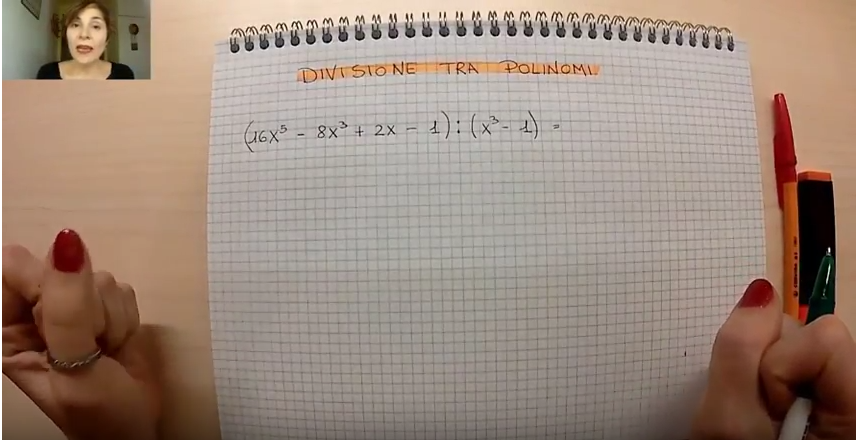 DIVISIONE TRA POLINOMI
(16x⁵ - 8x³ + 2x - 1) : (x³ - 1) =